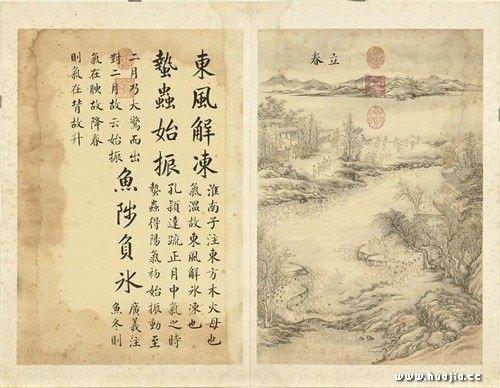 立春
東風解凍
淮南子注東方木火母也
氣溫故東風解冰凍也
蟄蟲始振
孔穎達疏正月中氣之時
蟄蟲得陽氣初始振動至
二月乃大驚而出
對二月故云始振
魚陟負冰
廣義注
魚冬則
氣在腴故降春
則氣在背故升
www.huajia.cc